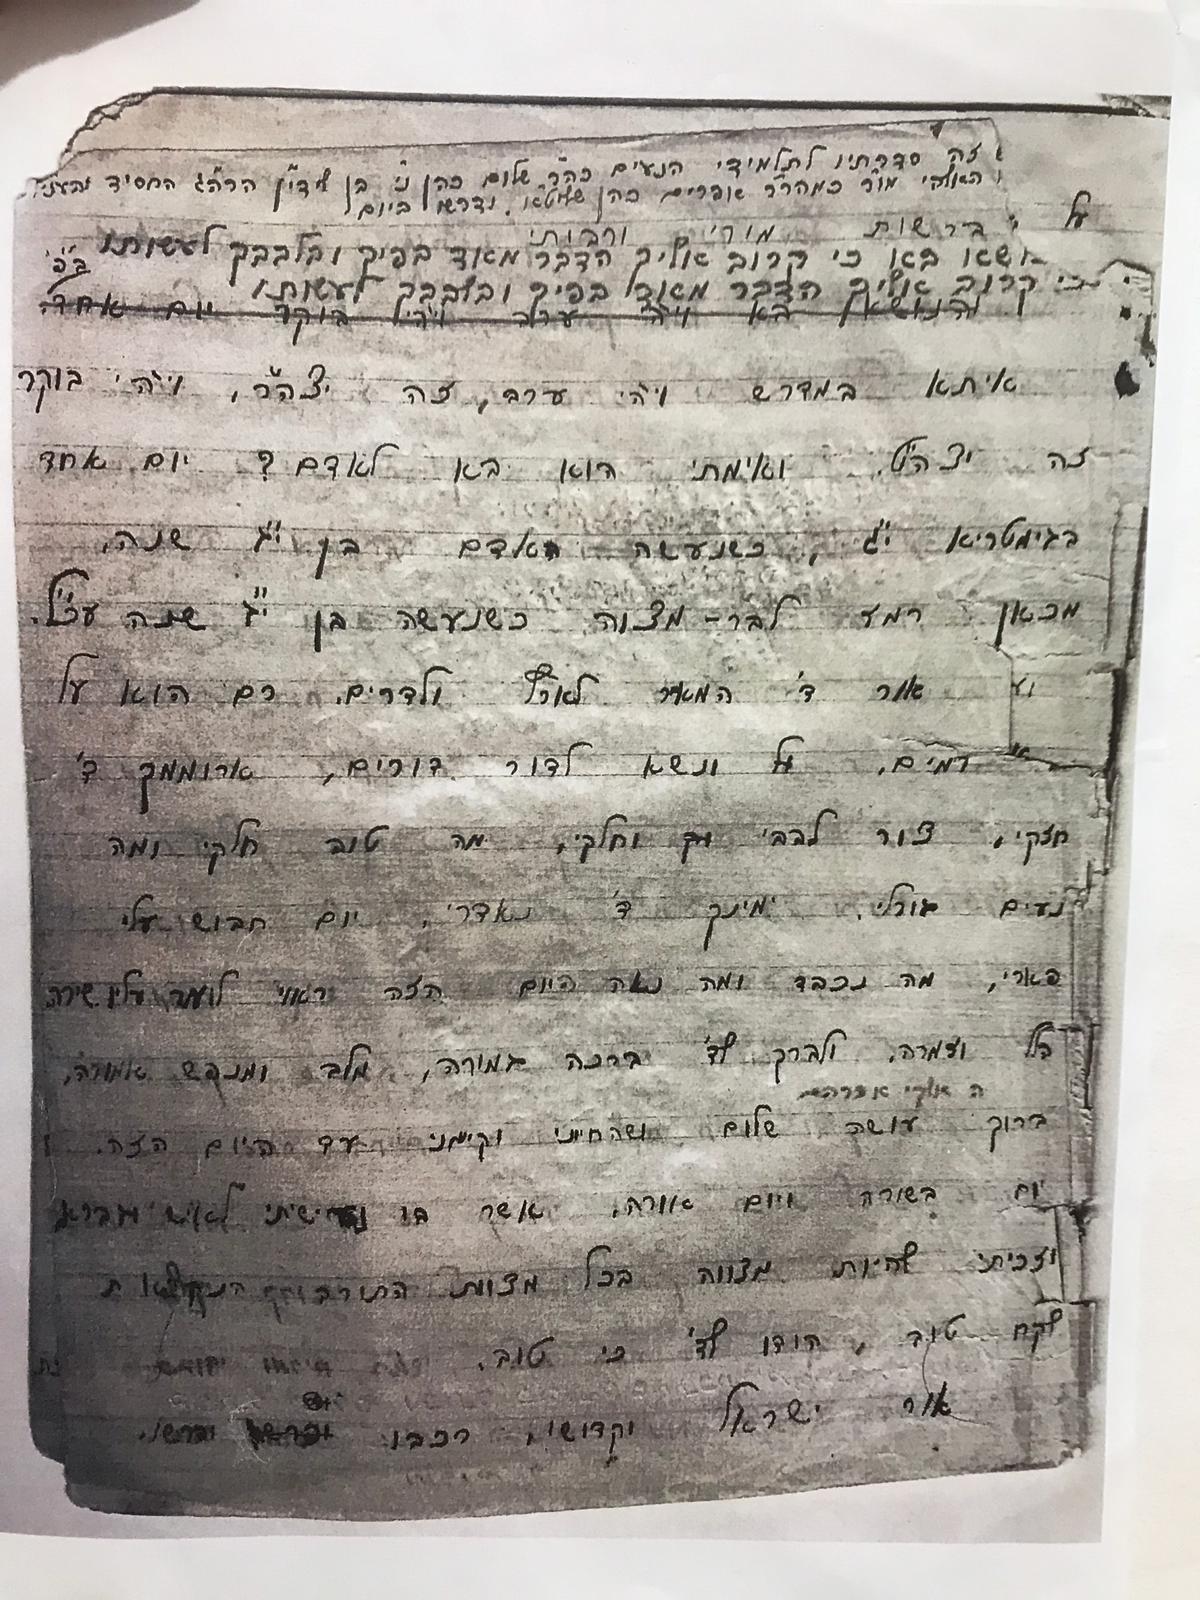 זה סדרתיו לתלמידי הנעים כה״ר שלום כהן נ״י בן לידי״ן הרה״ג החסיד והעניו
האלקי מו״ר כמהר״ר אפרים כהן שליט״א. נדרש ביום
על
ברשות מורי ורבותי
נושאו באו כי קרוב אליך הדבר מאוד בפיך ובלבבך לעשותו
כי קרוב אליך הדבר מאוד בפיך ובלבבך לעשותו
בא ויהי ערב ויהי בוקר יום אחד
איתא במדרש ויהי ערב, זה יצה״ר, ויהי בוקר
זה יצה״ט. ואימתי הוא בא לאדם? יום אחד
בגימטריא י״ג, כשנעשה האדם בן י״ג שנה,
מכאן רמז לבר-מצוה כשנעשה בן י״ג שנה עכ״ל.
אור ד׳ המאיר לארץ ולדרים. רם הוא על
רמים, על ונשא לדור דורים, ארוממך ד׳
חזקי, צור לבבי וחלקי, מה טוב חלקי ומה
נעים גורלי. ימינך ד׳ נאדרי, יום חבוש עלי
פארי, מה נכבד ומה נאה היום הזה ראוי לומר עליו שירה
הלל וזמרה, ולברך לד׳ ברכה גמורה, מלב ומנפש אמורה,
ה אלקי אברהם
ברוך עושה שלום ושהחייני וקיימני עד היום הזה.
יום בשורה ויום אורה, אשר בו לאיש
וזכיתי להיות מצווה בכל מצוות התורה
לקח טוב, הודו לד׳ כי טוב.
אור ישראל וקדושו, רכבו ופרשו.